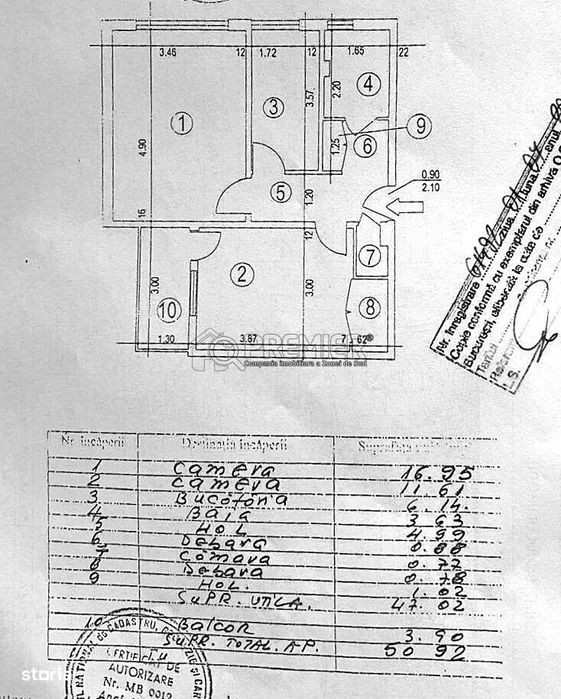 3.46 12 1.72 12 1.65 22
1 3 4
2.20
3.57
9
1.25 6
4.90
5 1.20
0.90
2.10
16
12
7
2
3.00 3.00
10 8
1.30 3.87 7 62
PREMIER
Companie imobiliara a Zonei de Sud
Nr. înregistrare
Copie conformă cu exemplarul din arhiva O.
București, eliberat la data de
L.S.
Nr. încăperii Destinația încăperii Suprafața
1 Camera 16.95
2 Camera 11.61
3 Bucătăria 6.14
4 Baia 3.63
5 HOL 4.99
6 Debara 0.88
7 Cămara 0.72
8 Debara 0.78
9 HOL. 1.02
SUPR. UTILA. 47.02
10 Balcon 3.90
SUPR. TOTAL. AP. 50.92
CERTIFICAT DE
AUTORIZARE
Nr. MB 0012
storia